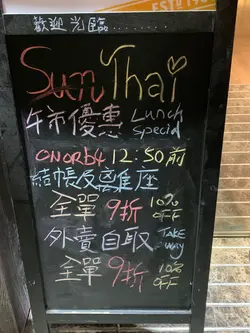 ESTD 19
歡迎 光臨........
Sun Thai
午市優惠 Lunch Special
ON OR B4 12:50前
結帳及離座
全單 9折 10% OFF
外賣自取 TAKE AWAY
全單 9折 10% OFF